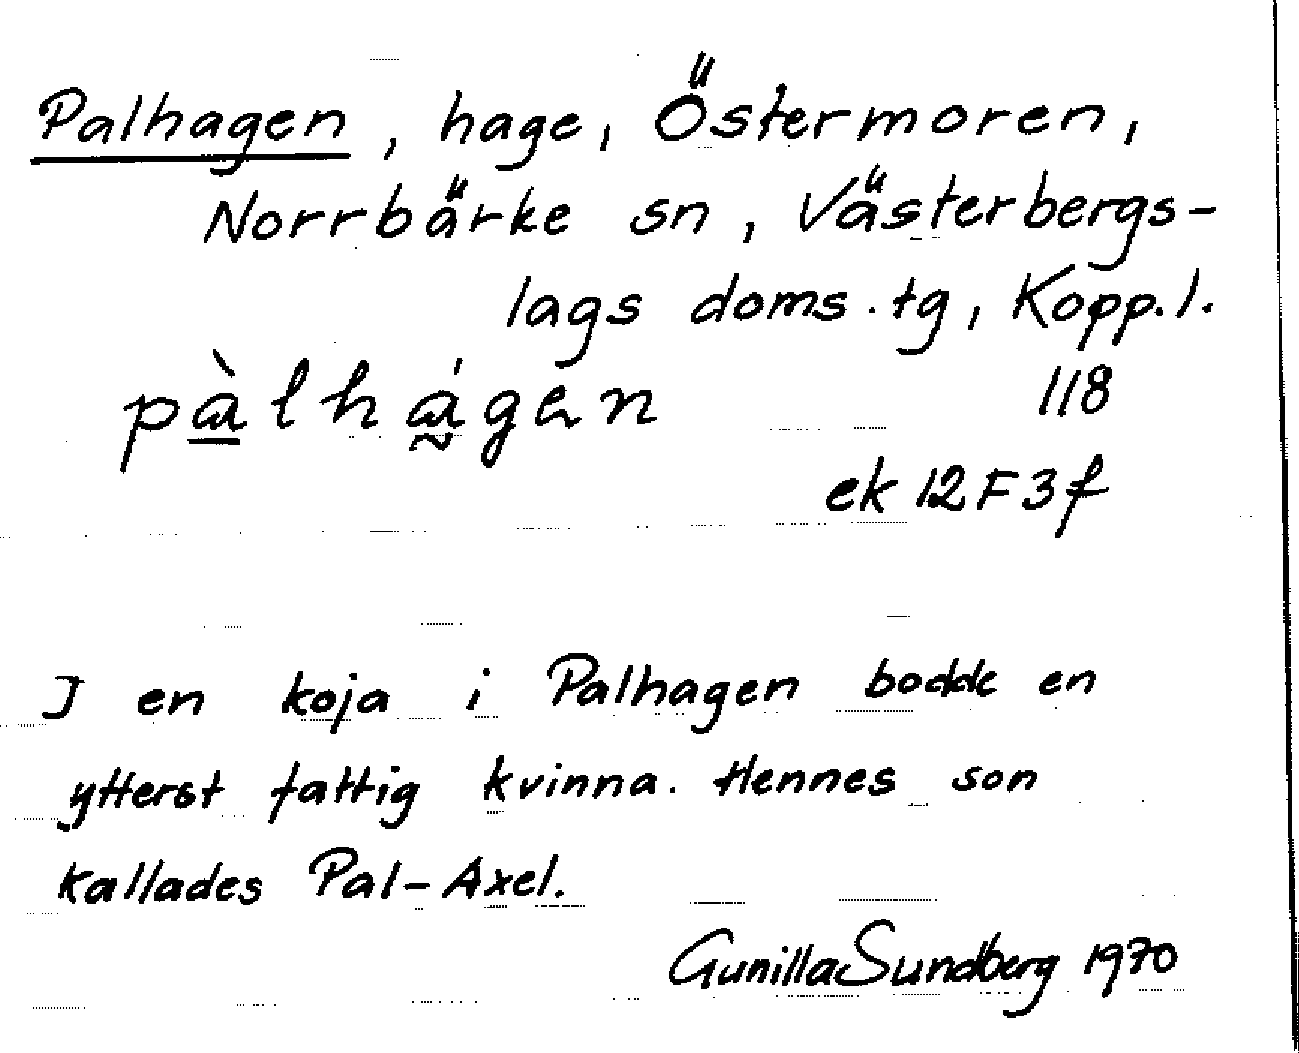 Palhagen, hage, Östermoren,
Norrbärke sn, Västerbergs-
lags doms.tg, Kopp.l.
pàlhágen 118
ek 12F3f
I en koja i Palhagen bodde en
ytterst fattig kvinna. Hennes son
kallades Pal-Axel.
Gunilla Sundberg 1970